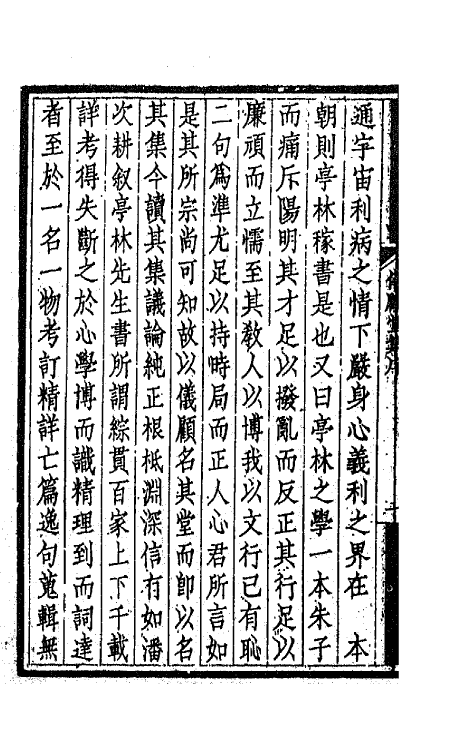 通宇宙利病之情下嚴身心義利之界在　本
朝則亭林稼書是也又曰亭林之學一本朱子
而痛斥陽明其才足以撥亂而反正其行足以
廉頑而立懦至其敎人以博我以文行己有恥
二句爲準尤足以持時局而正人心君所言如
是其所宗尚可知故以儀顧名其堂而卽以名
其集今讀其集議論純正根柢淵深信有如潘
次耕敘亭林先生書所謂綜貫百家上下千載
詳考得失斷之於心學博而識精理到而詞達
者至於一名一物考訂精詳亡篇逸句蒐輯無